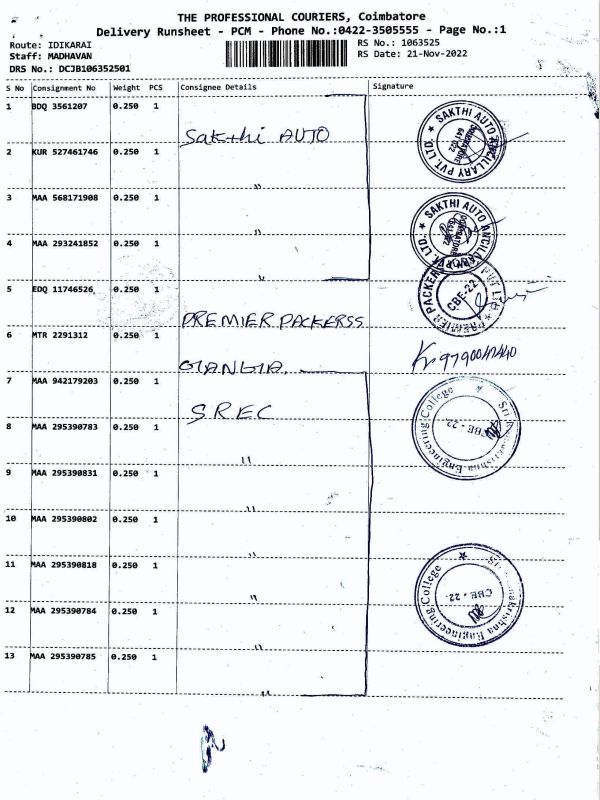 THE PROFESSIONAL COURIERS, Coimbatore
Delivery Runsheet - PCM - Phone No.:0422-3505555 - Page No.:1
Route: IDIKARAI
RS No.: 1063525
Staff: MADHAVAN
RS Date: 21-Nov-2022
DRS No.: DCJB106352501
S No Consignment No Weight PCS Consignee Details Signature
1 BDQ 3561207 0.250 1
Sakthi AUTO
SAKTHI AUTO ANCILLARY PVT. LTD.
COIMBATORE
641 022
2 KUR 527461746 0.250 1
"
3 MAA 568171908 0.250 1
"
SAKTHI AUTO ANCILLARY PVT. LTD.
COIMBATORE
4 MAA 293241852 0.250 1
"
5 EDQ 11746526 0.250 1
PREMIER PACKERSS
PREMIER PACKER PVT LTD
CBE-22
6 MTR 2291312 0.250 1
7 MAA 942179203 0.250 1
SREC
Sri Ramakrishna Engineering College
CBE - 22.
8 MAA 295390783 0.250 1
"
9 MAA 295390831 0.250 1
"
10 MAA 295390802 0.250 1
"
11 MAA 295390818 0.250 1
"
Sri Ramakrishna Engineering College
CBE - 22.
12 MAA 295390784 0.250 1
"
13 MAA 295390785 0.250 1
"